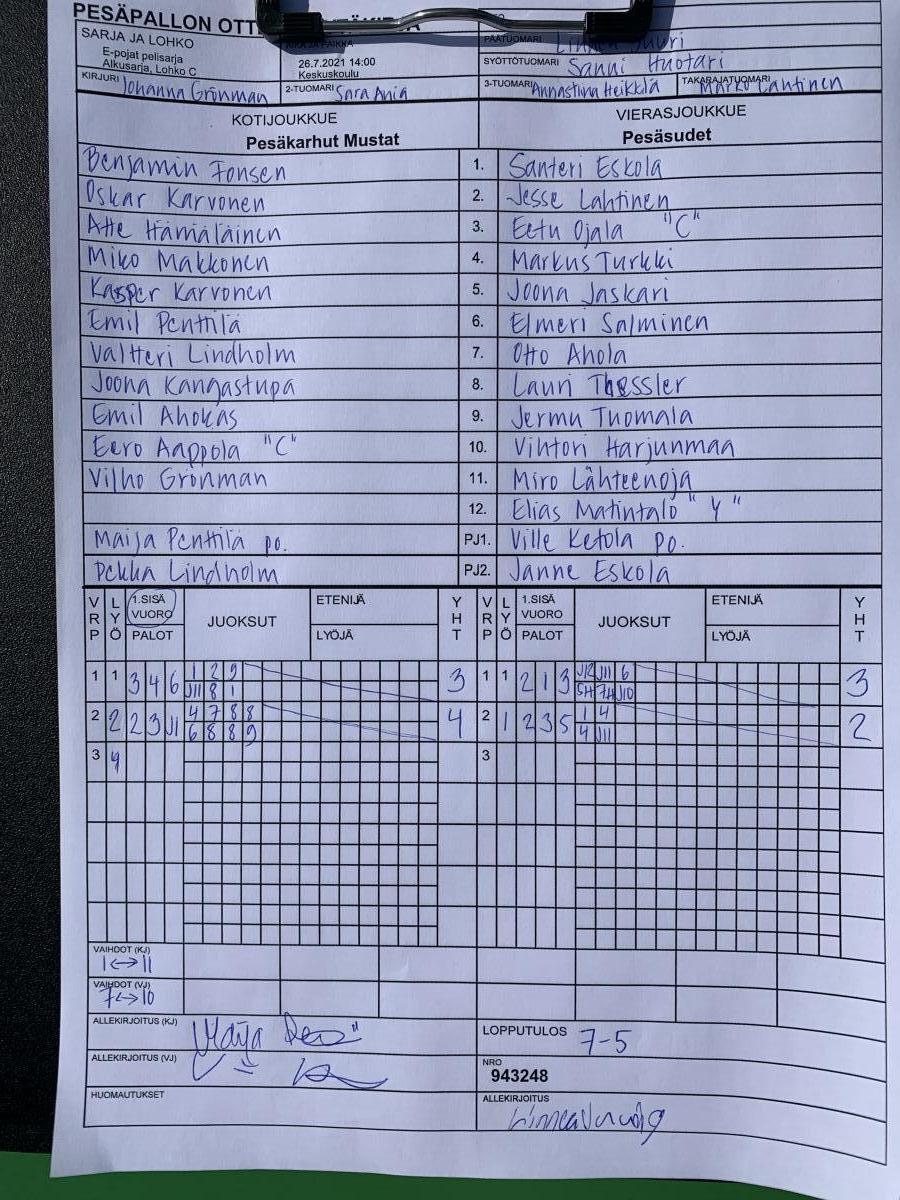 PESÄPALLON OTT
SARJA JA LOHKO
E-pojat pelisarja
Alkusarja, Lohko C
AIKA JA PAIKKA
26.7.2021 14:00
Keskuskoulu
PÄÄTUOMARI
SYÖTTÖTUOMARI Sanni Huotari
KIRJURI Johanna Grönman
2-TUOMARI Sara Ania
3-TUOMARI Annastiina Heikkilä
TAKARAJATUOMARI Marko Lahtinen
KOTIJOUKKUE VIERASJOUKKUE
Pesäkarhut Mustat Pesäsudet
Benjamin Jonsen 1. Santeri Eskola
Oskar Karvonen 2. Jesse Lahtinen
Atte Hämäläinen 3. Eetu Ojala "C"
Miko Makkonen 4. Markus Turkki
Kasper Karvonen 5. Joona Jaskari
Emil Penttilä 6. Elmeri Salminen
Valtteri Lindholm 7. Otto Ahola
Joona Kangastupa 8. Lauri Thessler
Emil Ahokas 9. Jermu Tuomala
Eero Aappola "C" 10. Vihtori Harjunmaa
Vilho Grönman 11. Miro Lähteenoja
12. Elias Matintalo "Y"
Maija Penttilä po. PJ1. Ville Ketola po.
Pekka Lindholm PJ2. Janne Eskola
VRP LYÖ 1.SISÄ VUORO PALOT JUOKSUT ETENIJÄ LYÖJÄ YHT VRP LYÖ 1.SISÄ VUORO PALOT JUOKSUT ETENIJÄ LYÖJÄ YHT
1 1 3 4 6 1 2 9 3 1 1 2 1 3 J12 J11 6 3
J11 8 1 5H 7H J10
2 2 2 3 J1 4 7 8 8 4 2 1 2 3 5 1 4 2
6 8 8 9 4 J11
3 9 3
VAIHDOT (KJ)
1↔11
VAIHDOT (VJ)
7↔10
ALLEKIRJOITUS (KJ) Maija
LOPPUTULOS 7-5
ALLEKIRJOITUS (VJ)
NRO
943248
HUOMAUTUKSET
ALLEKIRJOITUS